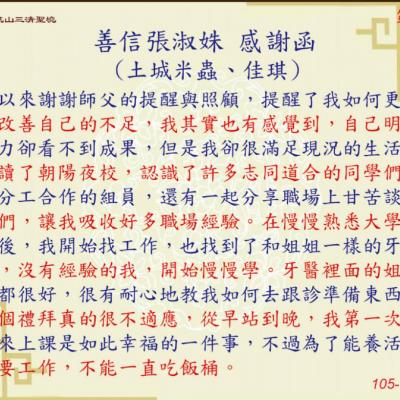 山三清聖境
善信張淑姝 感謝函
(土城米蟲、佳琪)
以來謝謝師父的提醒與照顧，提醒了我如何更
改善自己的不足，我其實也有感覺到，自己明
力卻看不到成果，但是我卻很滿足現況的生活
讀了朝陽夜校，認識了許多志同道合的同學們
分工合作的組員，還有一起分享職場上甘苦談
們，讓我吸收好多職場經驗。在慢慢熟悉大學
後，我開始找工作，也找到了和姐姐一樣的牙
，沒有經驗的我，開始慢慢學。牙醫裡面的姐
都很好，很有耐心地教我如何去跟診準備東西
個禮拜真的很不適應，從早站到晚，我第一次
來上課是如此幸福的一件事，不過為了能養活
要工作，不能一直吃飯桶。
105-